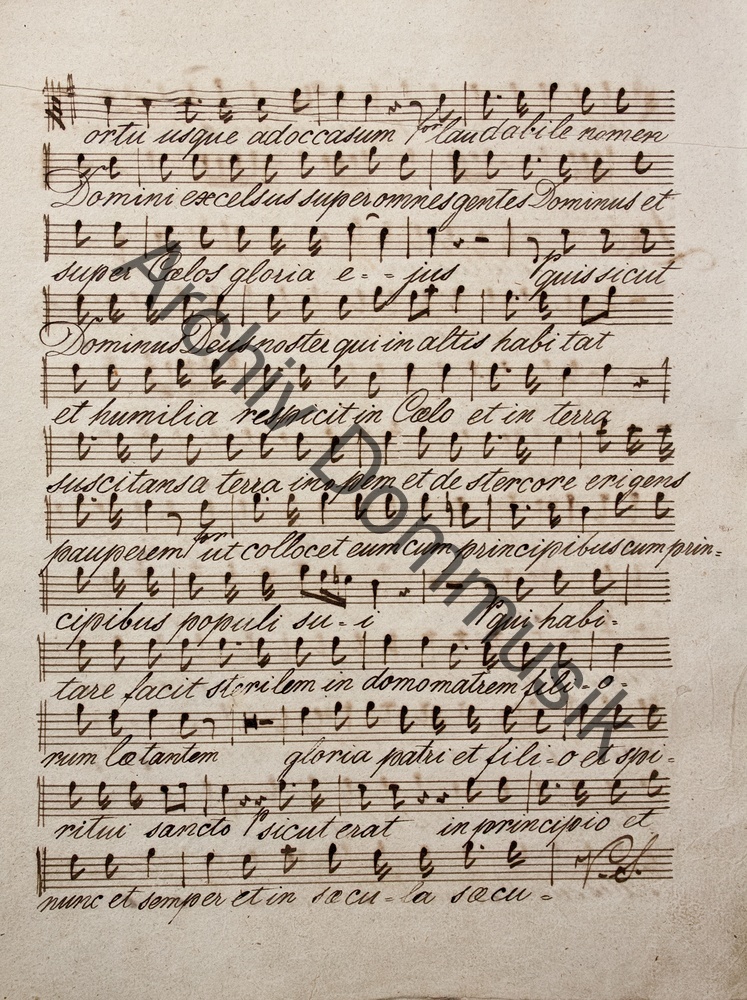 ortu usque adoccasum for laudabile nomen
Domini excelsus superomnes gentes Dominus et
super Cœlos gloria e=-jus p quis sicut
Dominus Deus noster qui in altis habitat
et humilia respicit in Cœlo et in terra
suscitans a terra inopem et de stercore erigens
pauperem for ut collocet eum cum principibus cum prin=
cipibus populi su=-i p qui habi=
tare facit sterilem in domo matrem fili=o=
rum lætantem gloria patri et fili=o et spi=
ritui sancto p sicut erat in principio et
nunc et semper et in sæcu=la sæcu=
V.S.
Archiv Dommusik